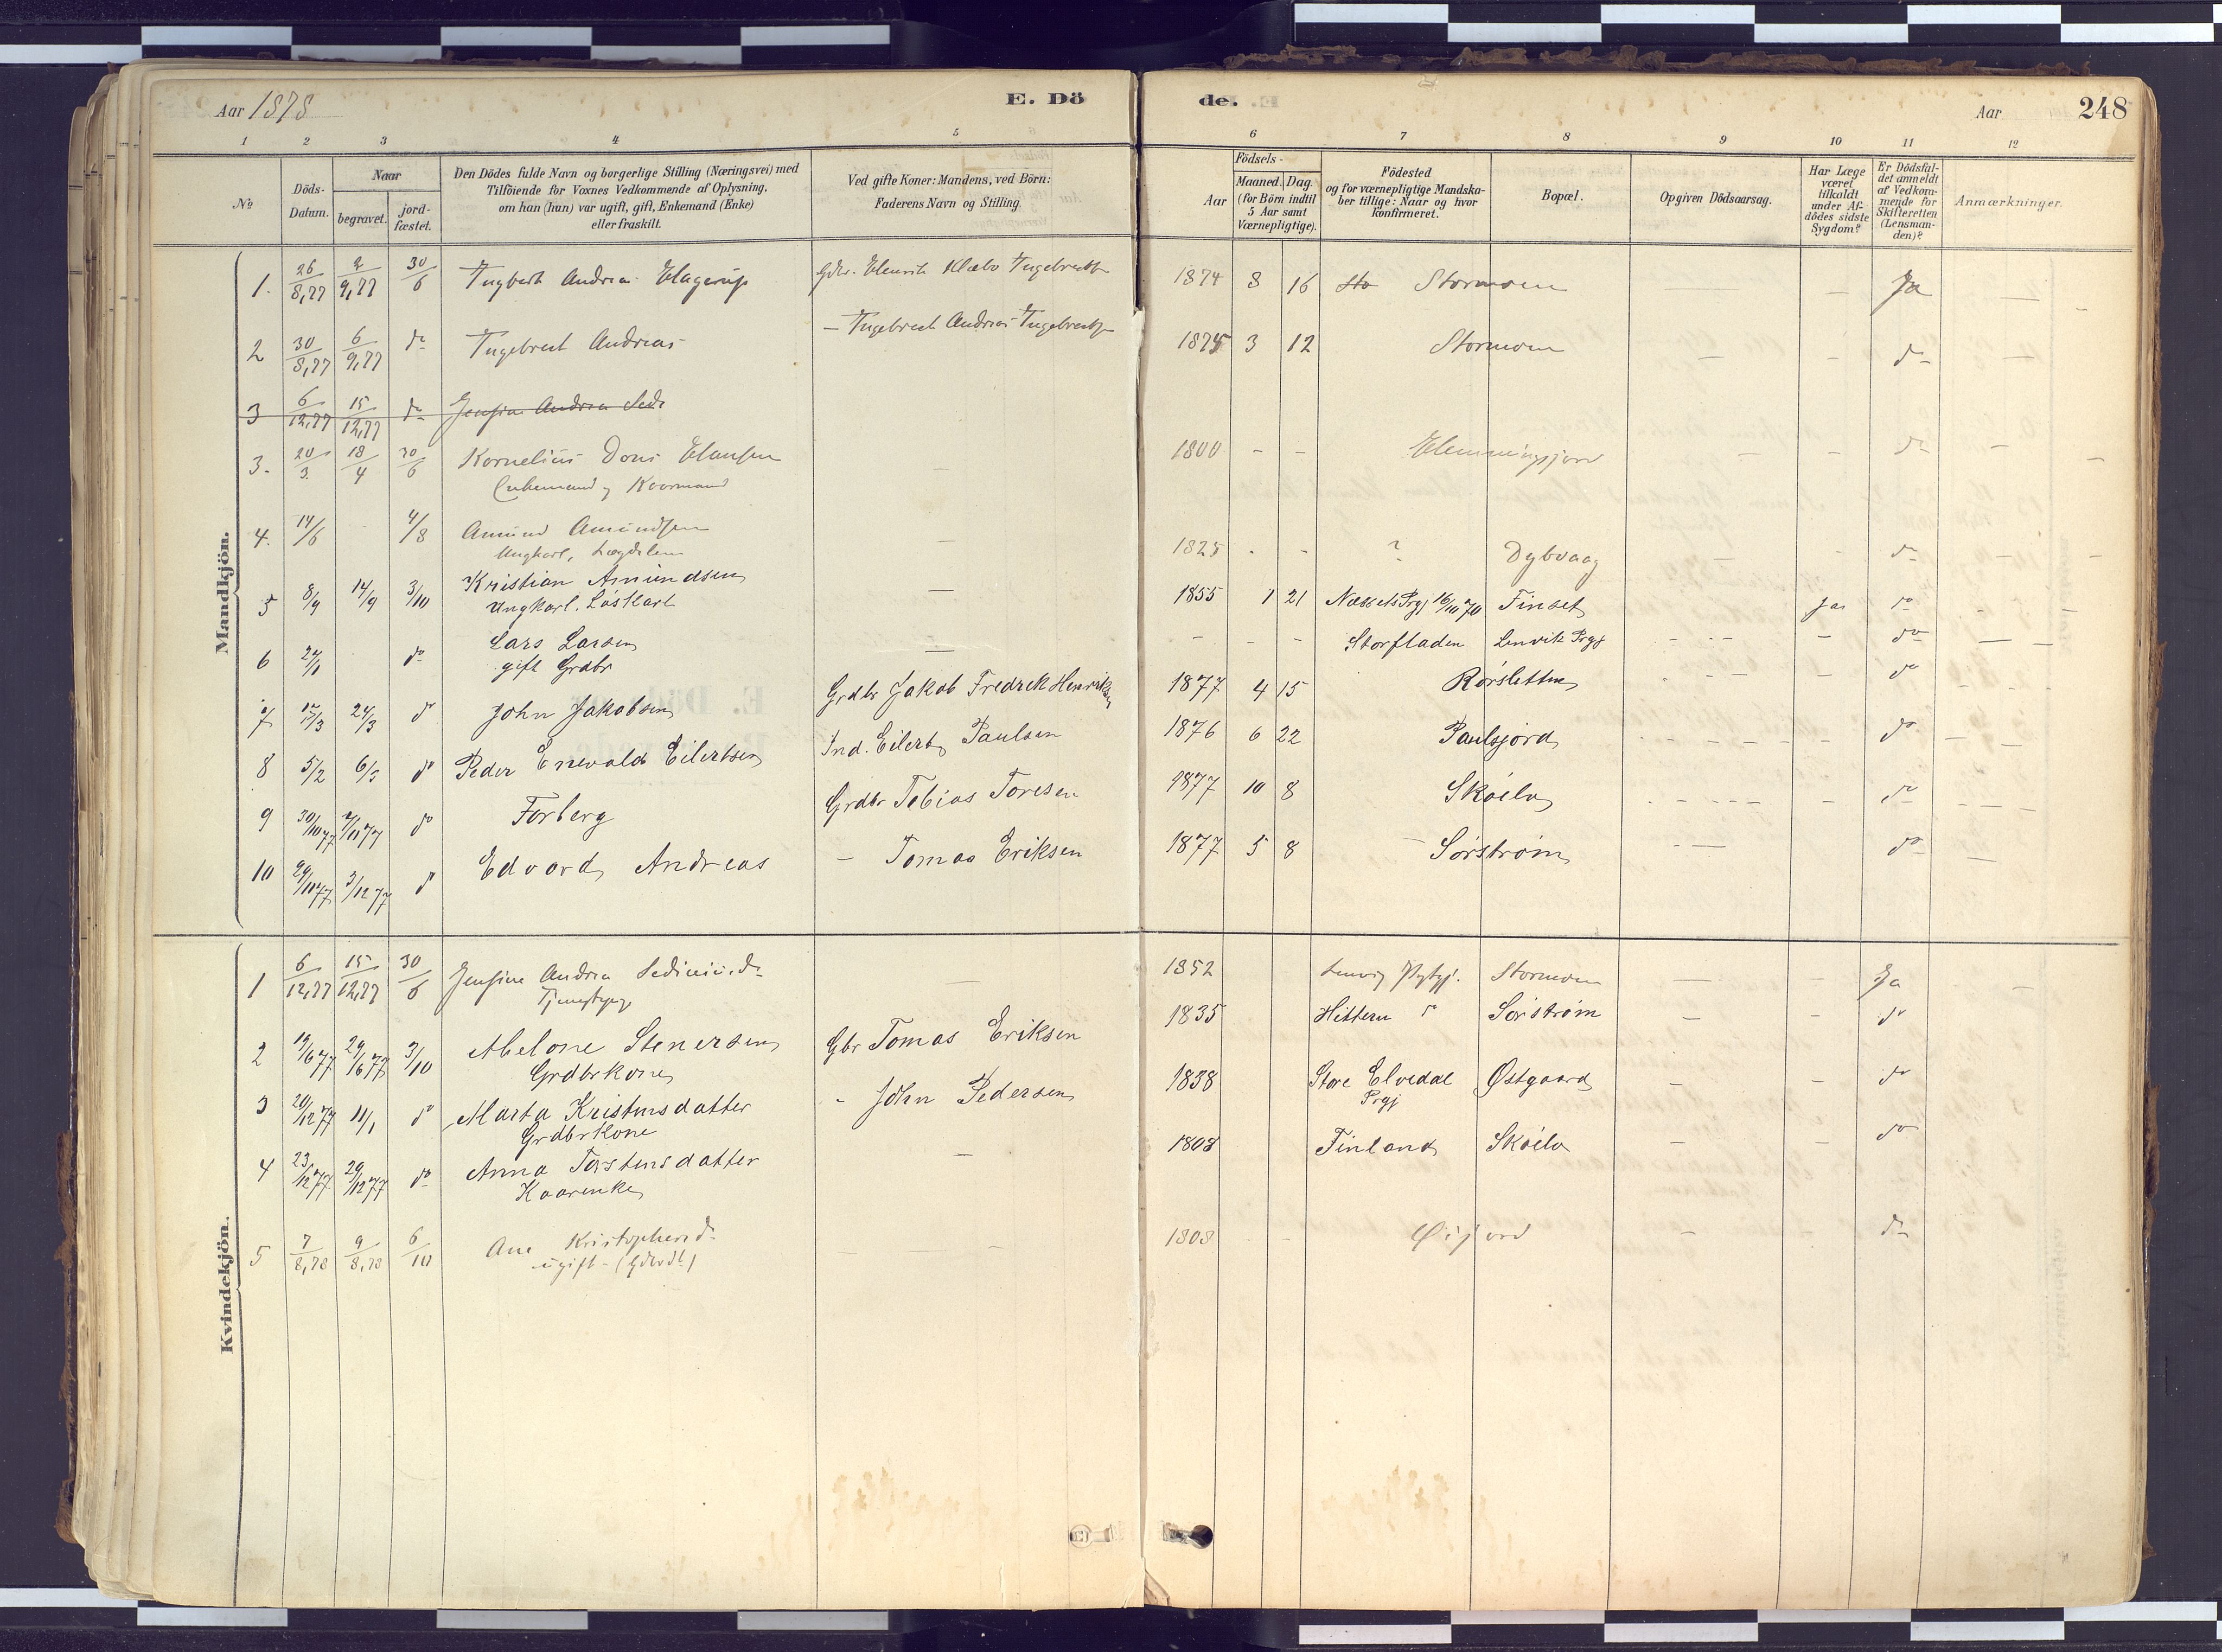 Aar 1878 E. Dö de. Aar 248
1 2 3 4 5 6 7 8 9 10 11 12
No
Döds-Datum.
Naar
begravet.
jord-fæstet.
Den Dödes fulde Navn og borgerlige Stilling (Næringsvei) med
Tilföiende for Voxnes Vedkommende af Oplysning,
om han (hun) var ugift, gift, Enkemand (Enke)
eller fraskilt.
Ved gifte Koner: Mandens, ved Börn:
Faderens Navn og Stilling.
Födsels-
Aar
Maaned. Dag.
(for Börn indtil
5 Aar samt
Værnepligtige).
Födested
og for værnepligtige Mandska-
ber tillige: Naar og hvor
konfirmeret.
Bopæl.
Opgiven Dödsaarsag.
Har Læge
været
tilkaldt
under Af-
dödes sidste
Sygdom?
Er Dödsfal-
det anmeldt
af Vedkom-
mende for
Skifteretten
(Lensman-
den)?
Anmærkninger.
Mandkjön.
1. 26/8,77 2/9,77 30/6 Ingbert Andrea Hagerup Gdbr. Henrik Klæbo Ingebrects 1874 8 16 Stormoen — — Ja —
2 30/8,77 6/9,77 do Ingebrect Andreas — Ingebrect Andreas Ingebrects 1875 3 12 Stormoen — — do —
3 6/12,77 15/12,77 do Jensine Andrea Sed
3. 20/3 18/4 30/6 Kornelius Dons Hansen — 1800 - - Hemmingsjord — — do —
Enkemand, Kaarmand
4. 14/6 4/8 Amund Amundsen — 1825 - - ? Dybvaag — — do —
Ungkarl, Lægdslem
5 8/9 14/9 3/10 Kristian Amundsen — 1855 1 21 Næssets Prgj 16/10 70 Finset Ja do -
Ungkarl. Løskarl
6 24/1 do Lars Larsen — - - - Storfladen Lenvik Prgj - - - do —
gift Grdbr
7 12/3 24/3 do John Jakobsen Grdbr Jakob Fredrek Henriksen 1877 4 15 Rørsletten - - - do -
8 5/2 6/3 do Peder Enevald Eilertsen Ind. Eilert Paulsen 1876 6 22 Paulsjord - - - do -
9 30/10 77 7/11 77 do Forberg Grdbr Tobias Toresen 1877 10 8 Skøelv - - - do -
10 29/11 77 3/12 77 do Edvard Andreas — Tomas Eriksen 1877 5 8 Sørstrøm - — do —
Kvindekjön.
1 6/12,77 15/12,77 30/6 Jensine Andrea — 1852 Lenvig Prgj. Stormoen — — Ja —
Tjenestepige
2 19/6 77 29/6 77 3/10 Abelone Stenersen Gbr Tomas Eriksen 1835 Hittern do Sørstrøm — - do
Grdbrkone
3 20/12 77 11/1 do Marta Kristensdatter - John Pedersen 1838 Store Elvedal Østgaard — — do
Grdbrkone Prgj
4 23/12 77 29/12 77 do Anna Torstensdatter — 1808 Finland Skøelv — — do
Kaarenke
5 7/8,78 9/8,78 6/10 Ane Kristophersd. — 1808 - Øijord — do
ugift - (Gdbrdt)